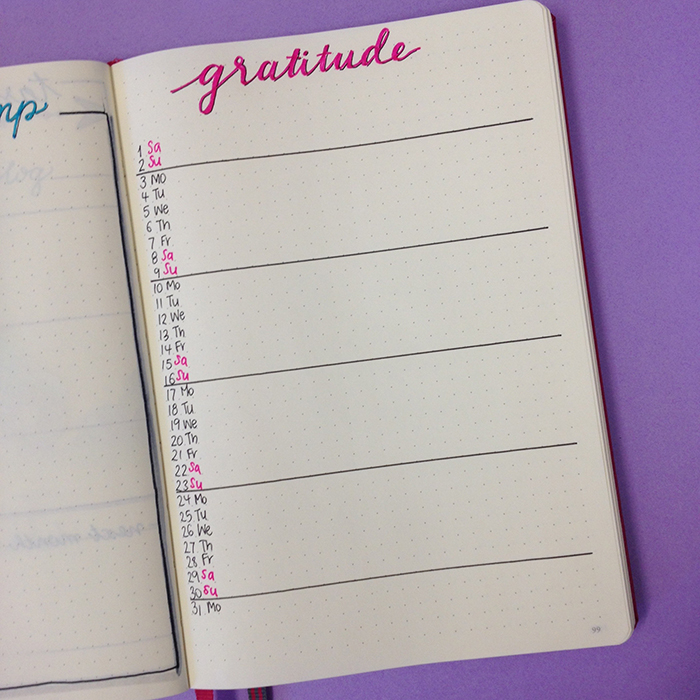 gratitude
1 Sa
2 Su
3 Mo
4 Tu
5 We
6 Th
7 Fr
8 Sa
9 Su
10 Mo
11 Tu
12 We
13 Th
14 Fr
15 Sa
16 Su
17 Mo
18 Tu
19 We
20 Th
21 Fr
22 Sa
23 Su
24 Mo
25 Tu
26 We
27 Th
28 Fr
29 Sa
30 Su
31 Mo